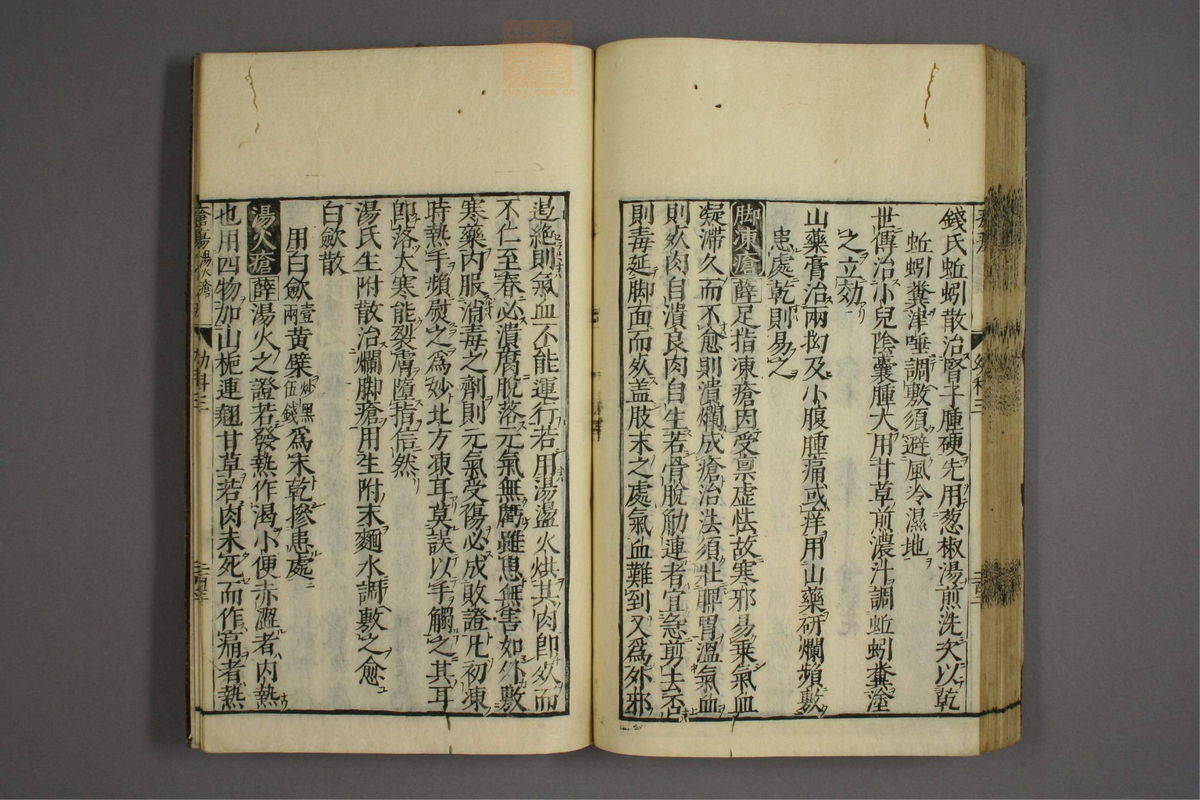 錢氏蚯蚓散治腎子腫硬先用葱椒湯煎洗次以乾
蚯蚓糞津唾調敷須避風冷濕地
世傳治小兒陰囊腫大用甘草煎濃汁調蚯蚓糞塗
之立効
山藥膏治兩拗及小腹腫痛或痒用山藥研爛頻敷
患處乾則易之
脚凍瘡 薛足指凍瘡因受禀虛怯故寒邪易乗氣血
凝滯久而不愈則潰爛成瘡治法須壯脾胃溫氣血
則死肉自潰良肉自生若骨脫觔連者宜急剪去否
則毒延脚面而死盖肢末之處氣血難到又爲外邪
遏絶則氣血不能運行若用湯盪火烘其肉即死而
不仁至春必潰腐脫落元氣無虧雖患無害如外敷
寒藥內服消毒之劑則元氣受傷必成敗證凡初凍
時熱手頻熨之爲妙北方凍耳莫誤以手觸之其耳
即落大寒能裂膚墮指信然
湯氏生附散治爛脚瘡用生附末麵水調敷之愈
白歛散
用白歛壹兩黃蘖炒黑伍錢爲末乾摻患處
湯火瘡 薛湯火之證若發熱作渴小便赤澀者内熱
也用四物加山梔連翹甘草若肉未死而作痛者熱